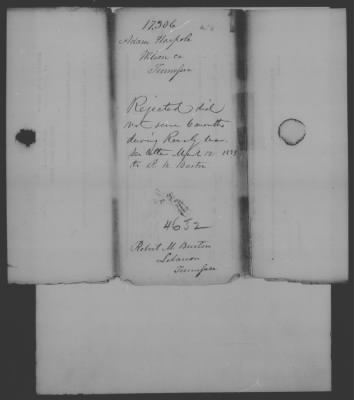 17306
Adam Harpole
Wilson co
Tennessee
Rejected did
not serve 6 months
during Revoly War.
See letter April 12 1839
to R. M. Burton
4652
Robert M. Burton
Lebanon
Tennessee